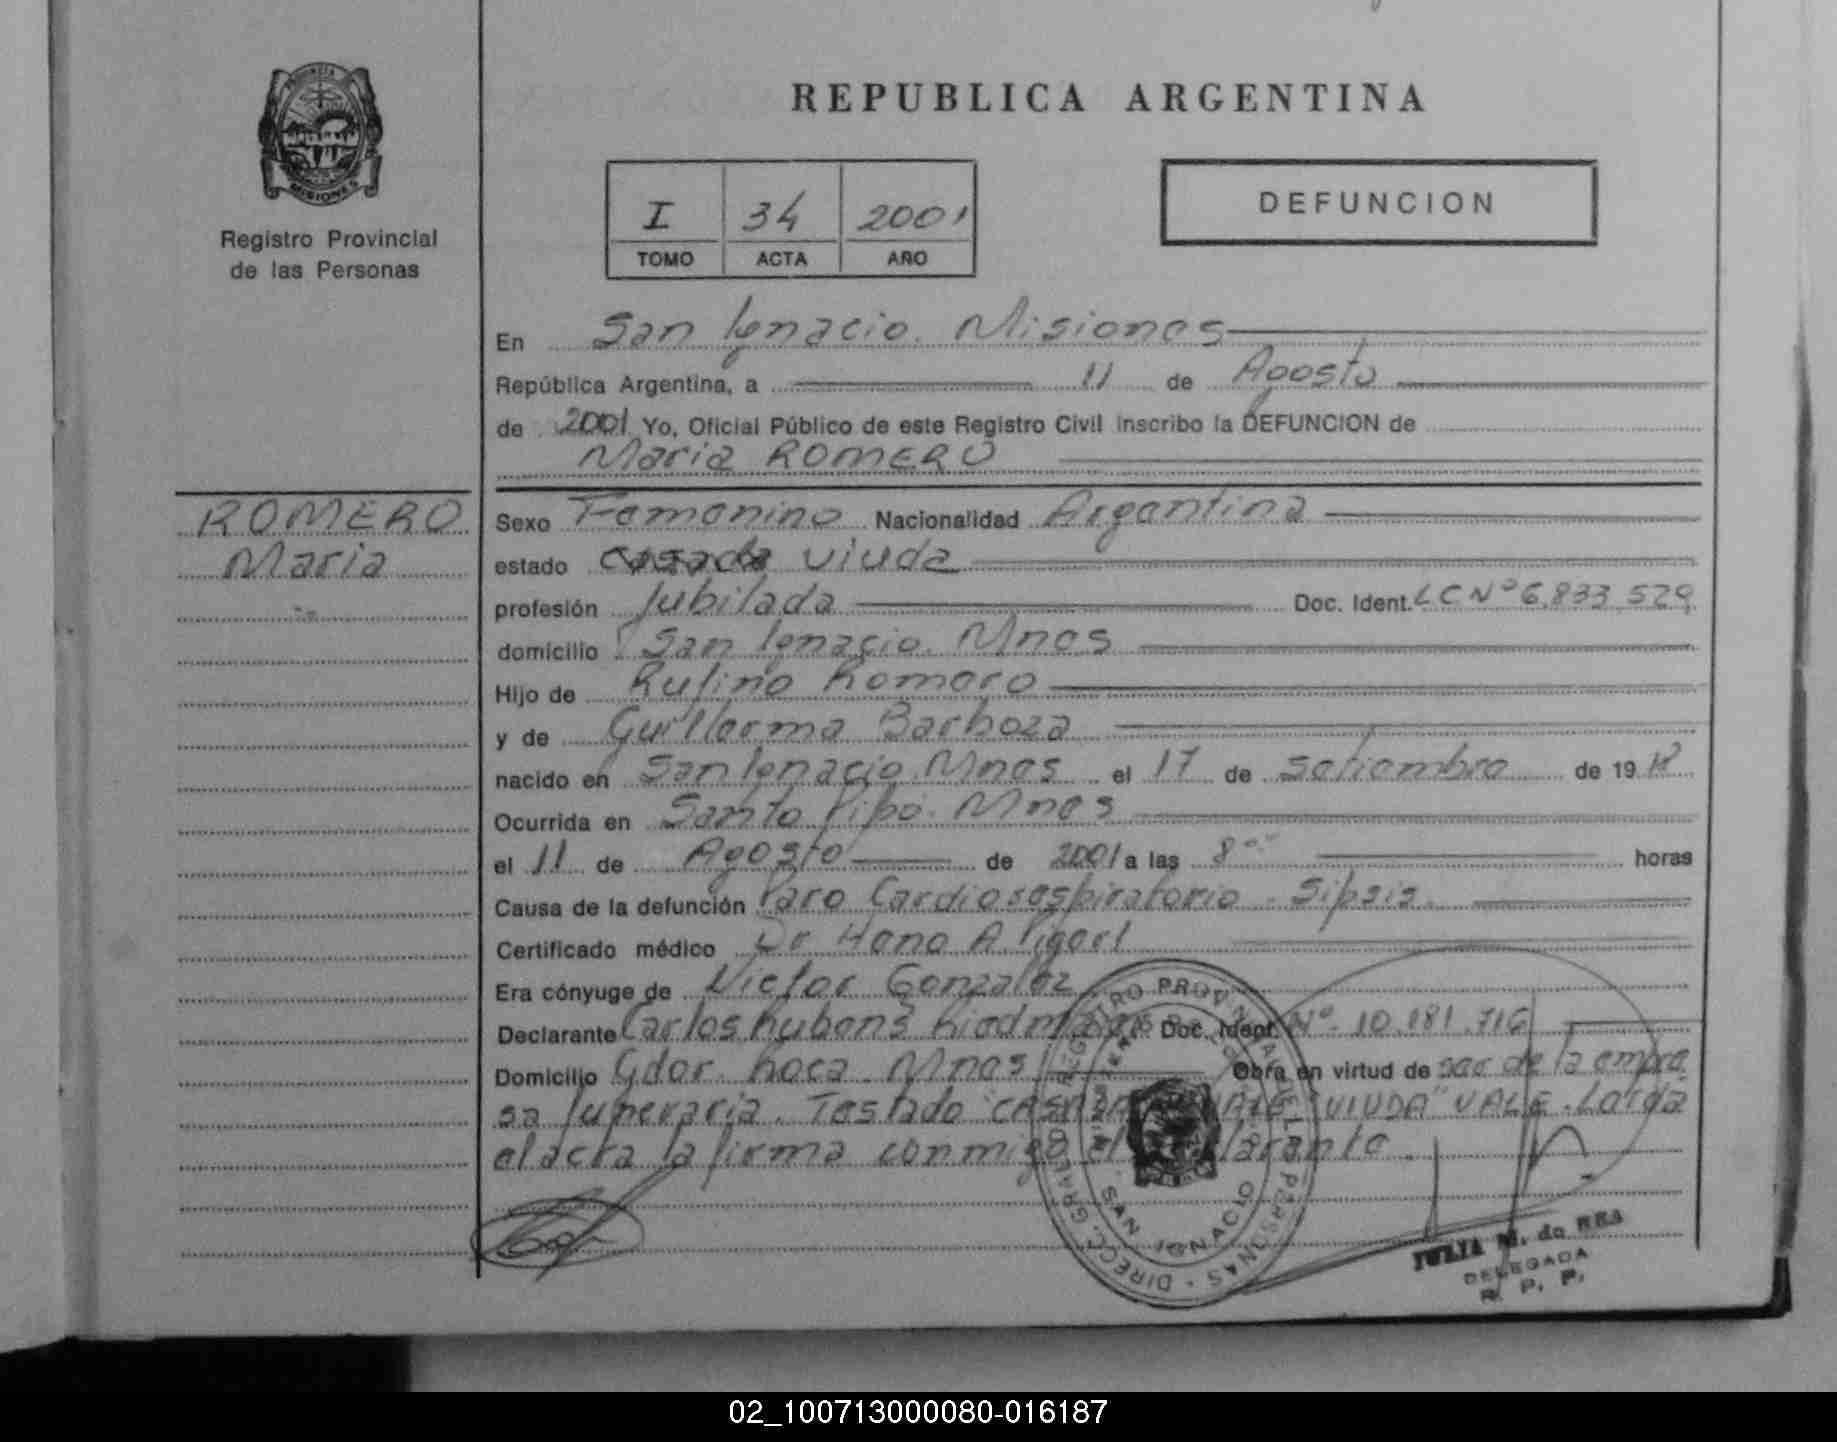 MISIONES
Registro Provincial
de las Personas
REPUBLICA ARGENTINA
I 34 2001
TOMO ACTA AÑO
DEFUNCION
En San Ignacio. Misiones
República Argentina, a 11 de Agosto
de 2001 Yo, Oficial Público de este Registro Civil inscribo la DEFUNCION de
Maria ROMERO
ROMERO
Maria
Sexo Femenino Nacionalidad Argentina
estado casada viuda
profesión Jubilada Doc. Ident. LC Nº 6.833.529
domicilio San Ignacio. Mnes
Hijo de Rufino Romero
y de Guillerma Barboza
nacido en San Ignacio. Mnes el 17 de Setiembre de 19
Ocurrida en Santo Pipo. Mnes
el 11 de Agosto de 2001 a las 8 horas
Causa de la defunción Paro Cardiorespiratorio - Sipsis.
Certificado médico Dr A
Era cónyuge de Victor Gonzalez
Declarante Carlos Rubens Doc. Ident. Nº 10.181.716
Domicilio Gdor. Roca. Mnes Obra en virtud de ser de la empre
sa funeraria. Testado "CASADA" "VIUDA" VALE. Leida
el acta la firma conmigo el declarante.
SAN IGNACIO
JULIA M. de REA
DELEGADA
R. P. P.
02_100713000080-016187